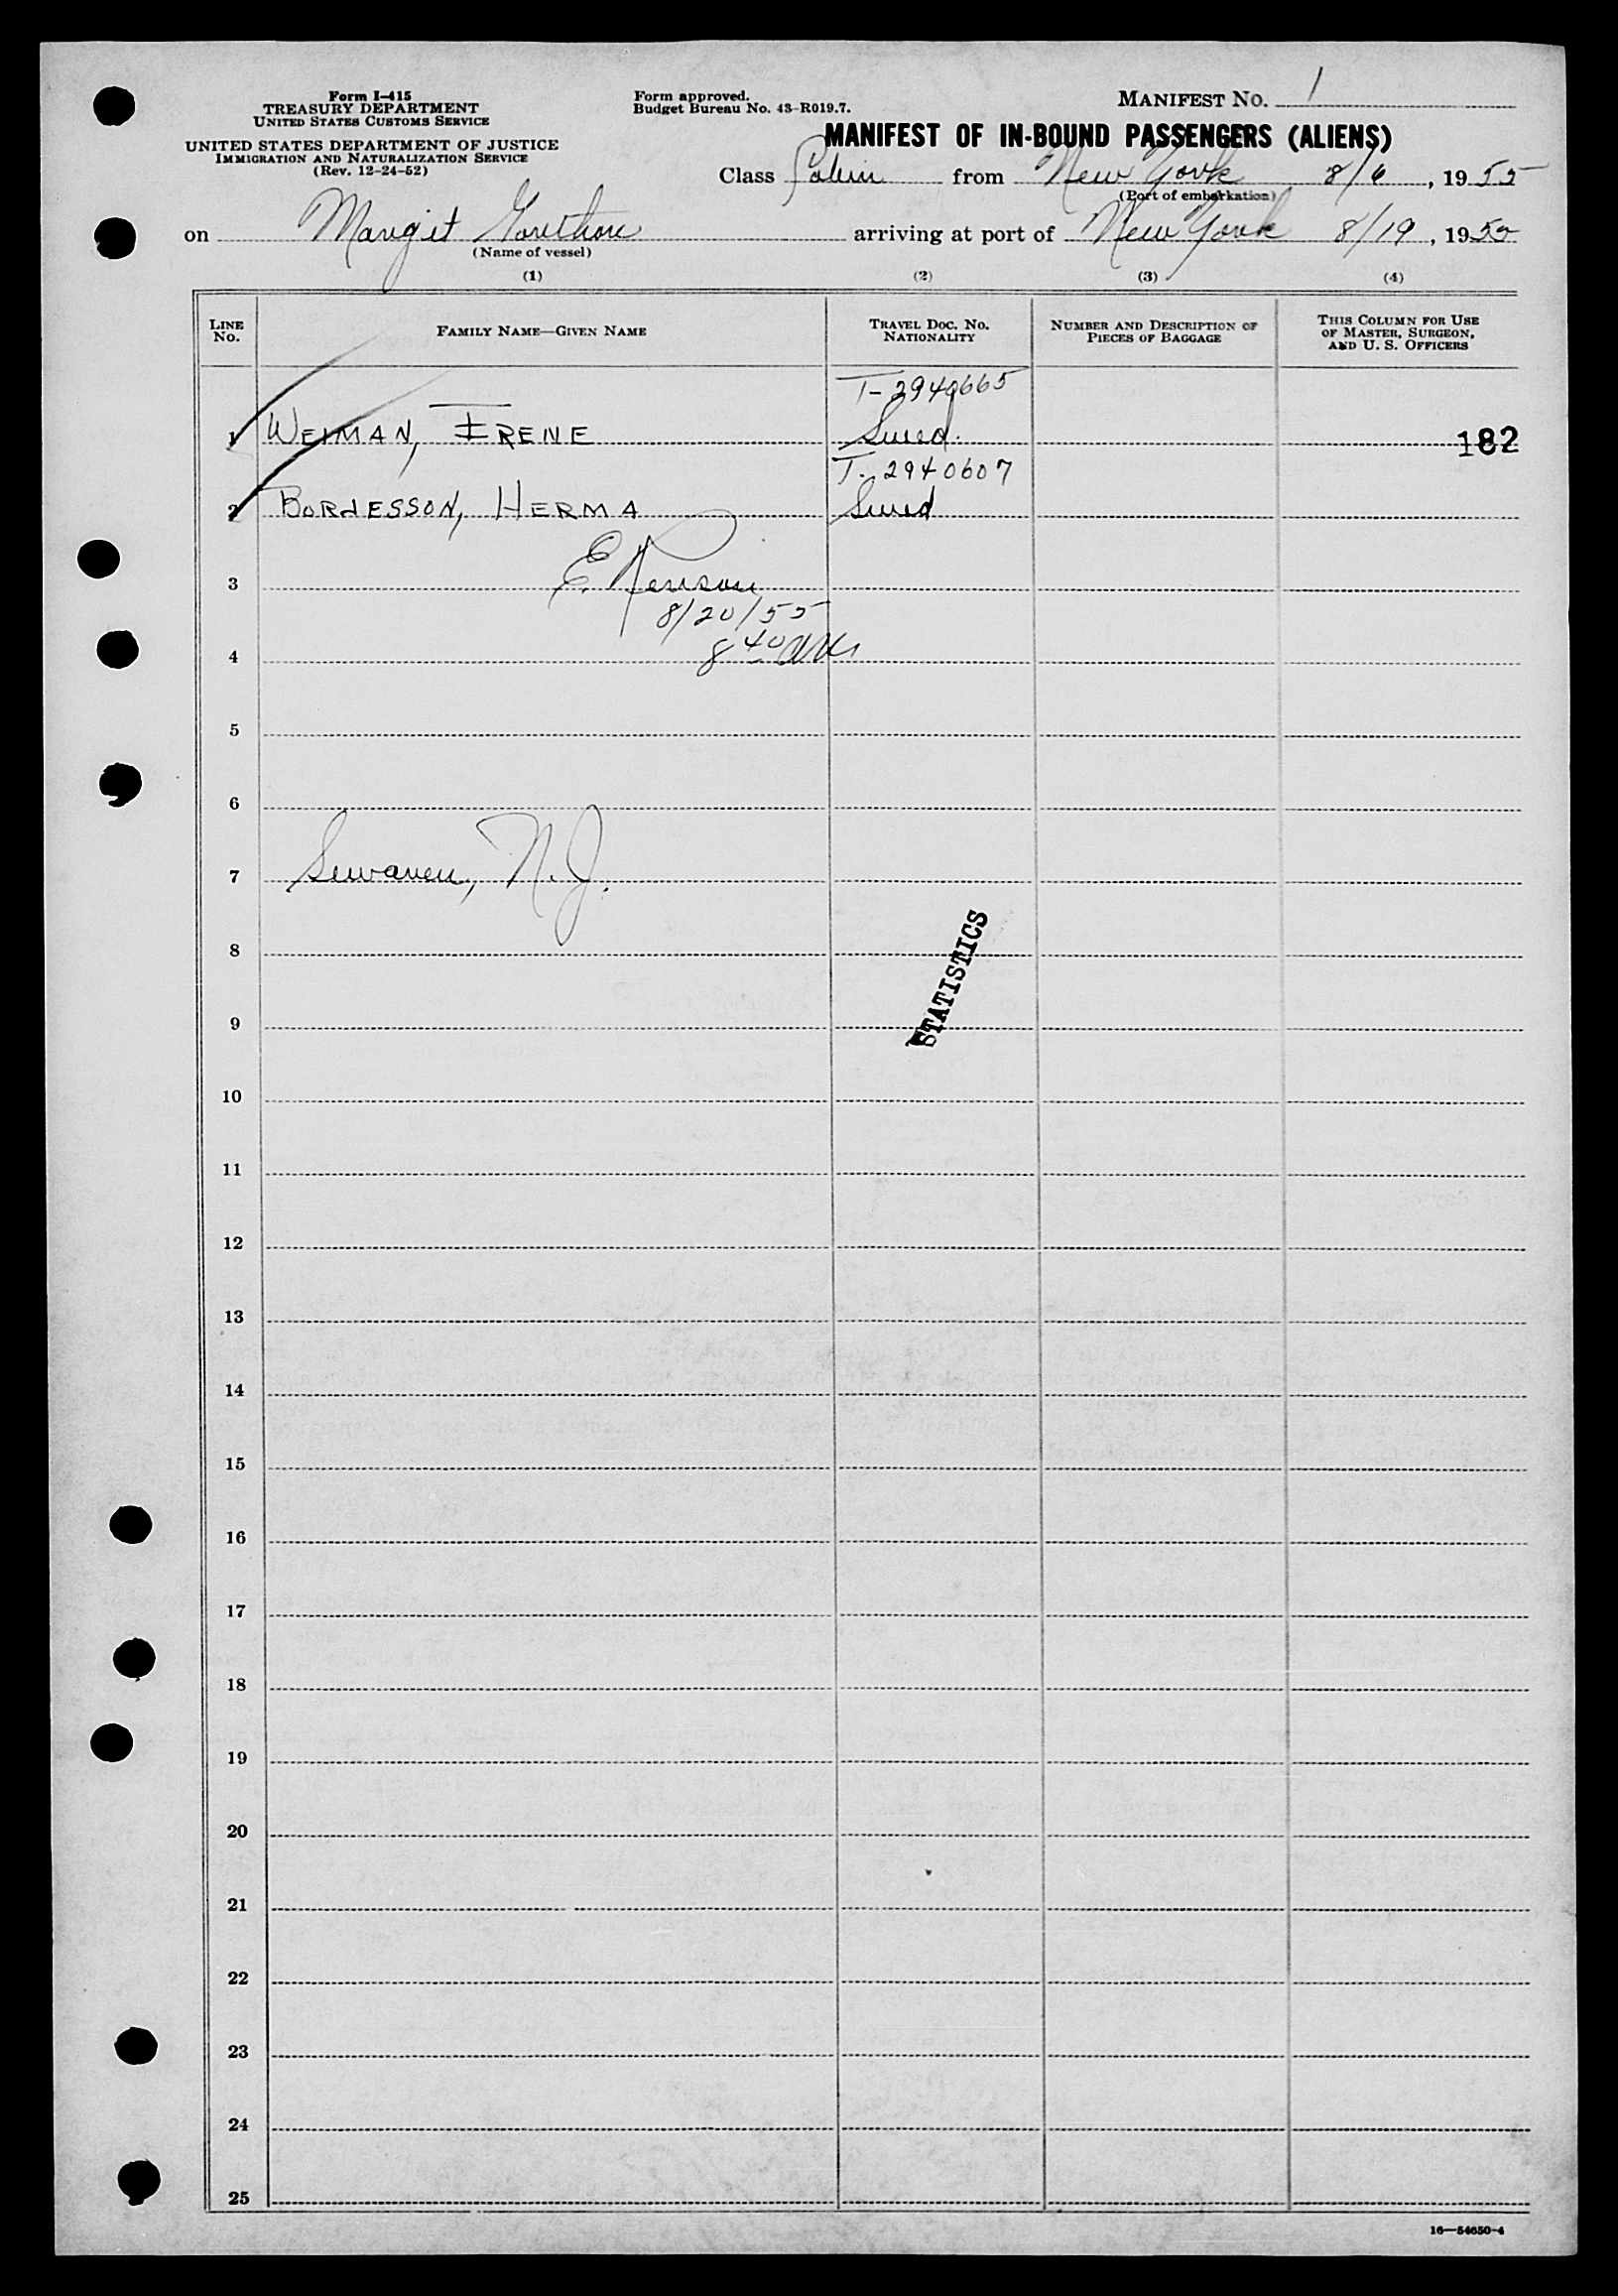 Form I-415
TREASURY DEPARTMENT
UNITED STATES CUSTOMS SERVICE
UNITED STATES DEPARTMENT OF JUSTICE
IMMIGRATION AND NATURALIZATION SERVICE
(Rev. 12-24-52)
Form approved.
Budget Bureau No. 43-R019.7.
MANIFEST No. 1
MANIFEST OF IN-BOUND PASSENGERS (ALIENS)
Class Cabin from New York 8/6, 1955
(Port of embarkation)
on Margit Gorthon arriving at port of New York 8/19, 1955
(Name of vessel)
(1) (2) (3) (4)
LINE No. FAMILY NAME—GIVEN NAME TRAVEL DOC. NO. NATIONALITY NUMBER AND DESCRIPTION OF PIECES OF BAGGAGE THIS COLUMN FOR USE OF MASTER, SURGEON, AND U. S. OFFICERS
T-2940665
1 WEIMAN, IRENE Swed. 182
T-2940607
2 BORJESSON, HERMA Swed
3 E.
8/20/55
4 8 40 AM
5
6
7 Sewaren, N.J.
STATISTICS
8
9
10
11
12
13
14
15
16
17
18
19
20
21
22
23
24
25
16—54650-4